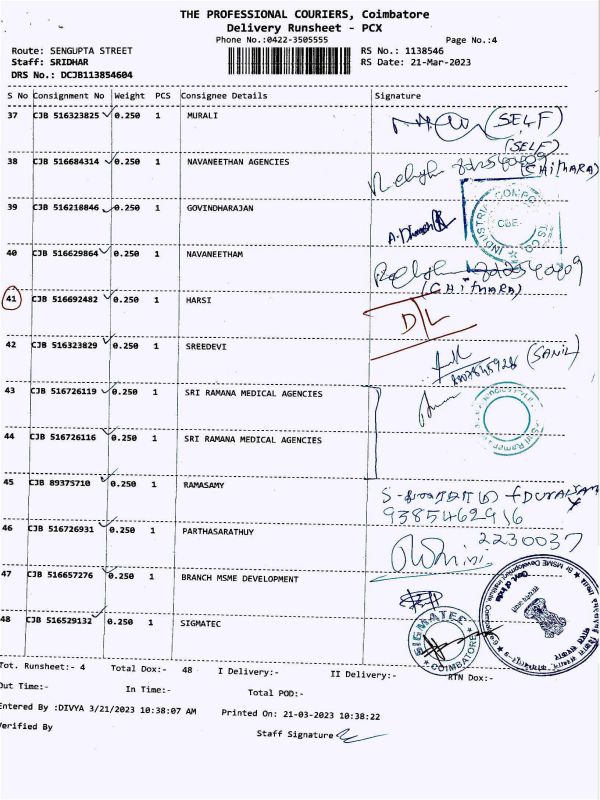 THE PROFESSIONAL COURIERS, Coimbatore
Delivery Runsheet - PCX
Phone No.:0422-3505555
Page No.:4
Route: SENGUPTA STREET
RS No.: 1138546
Staff: SRIDHAR
RS Date: 21-Mar-2023
DRS No.: DCJB113854604
S No Consignment No Weight PCS Consignee Details Signature
37 CJB 516323825 0.250 1 MURALI (SELF)
(SELF)
38 CJB 516684314 0.250 1 NAVANEETHAN AGENCIES
(CHITHARA)
39 CJB 516218846 0.250 1 GOVINDHARAJAN
40 CJB 516629864 0.250 1 NAVANEETHAM
(CHITHARA)
41 CJB 516692482 0.250 1 HARSI D/L
42 CJB 516323829 0.250 1 SREEDEVI (SANIL)
43 CJB 516726119 0.250 1 SRI RAMANA MEDICAL AGENCIES
44 CJB 516726116 0.250 1 SRI RAMANA MEDICAL AGENCIES
45 CJB 89375710 0.250 1 RAMASAMY
9385462916
46 CJB 516726931 0.250 1 PARTHASARATHUY
2230037
47 CJB 516657276 0.250 1 BRANCH MSME DEVELOPMENT
48 CJB 516529132 0.250 1 SIGMATEC
SIGMATEC
COIMBATORE
Tot. Runsheet:- 4 Total Dox:- 48 I Delivery:- II Delivery:- RTN Dox:-
Out Time:- In Time:- Total POD:-
Entered By :DIVYA 3/21/2023 10:38:07 AM Printed On: 21-03-2023 10:38:22
Verified By
Staff Signature